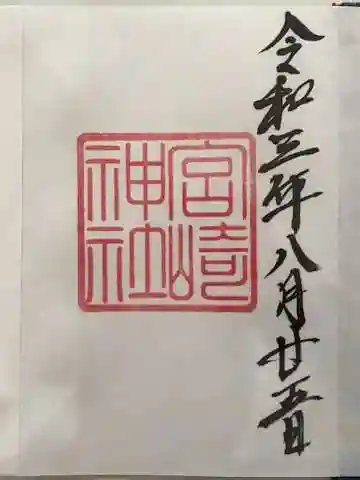 令和三年八月廿五日
宮崎
神社